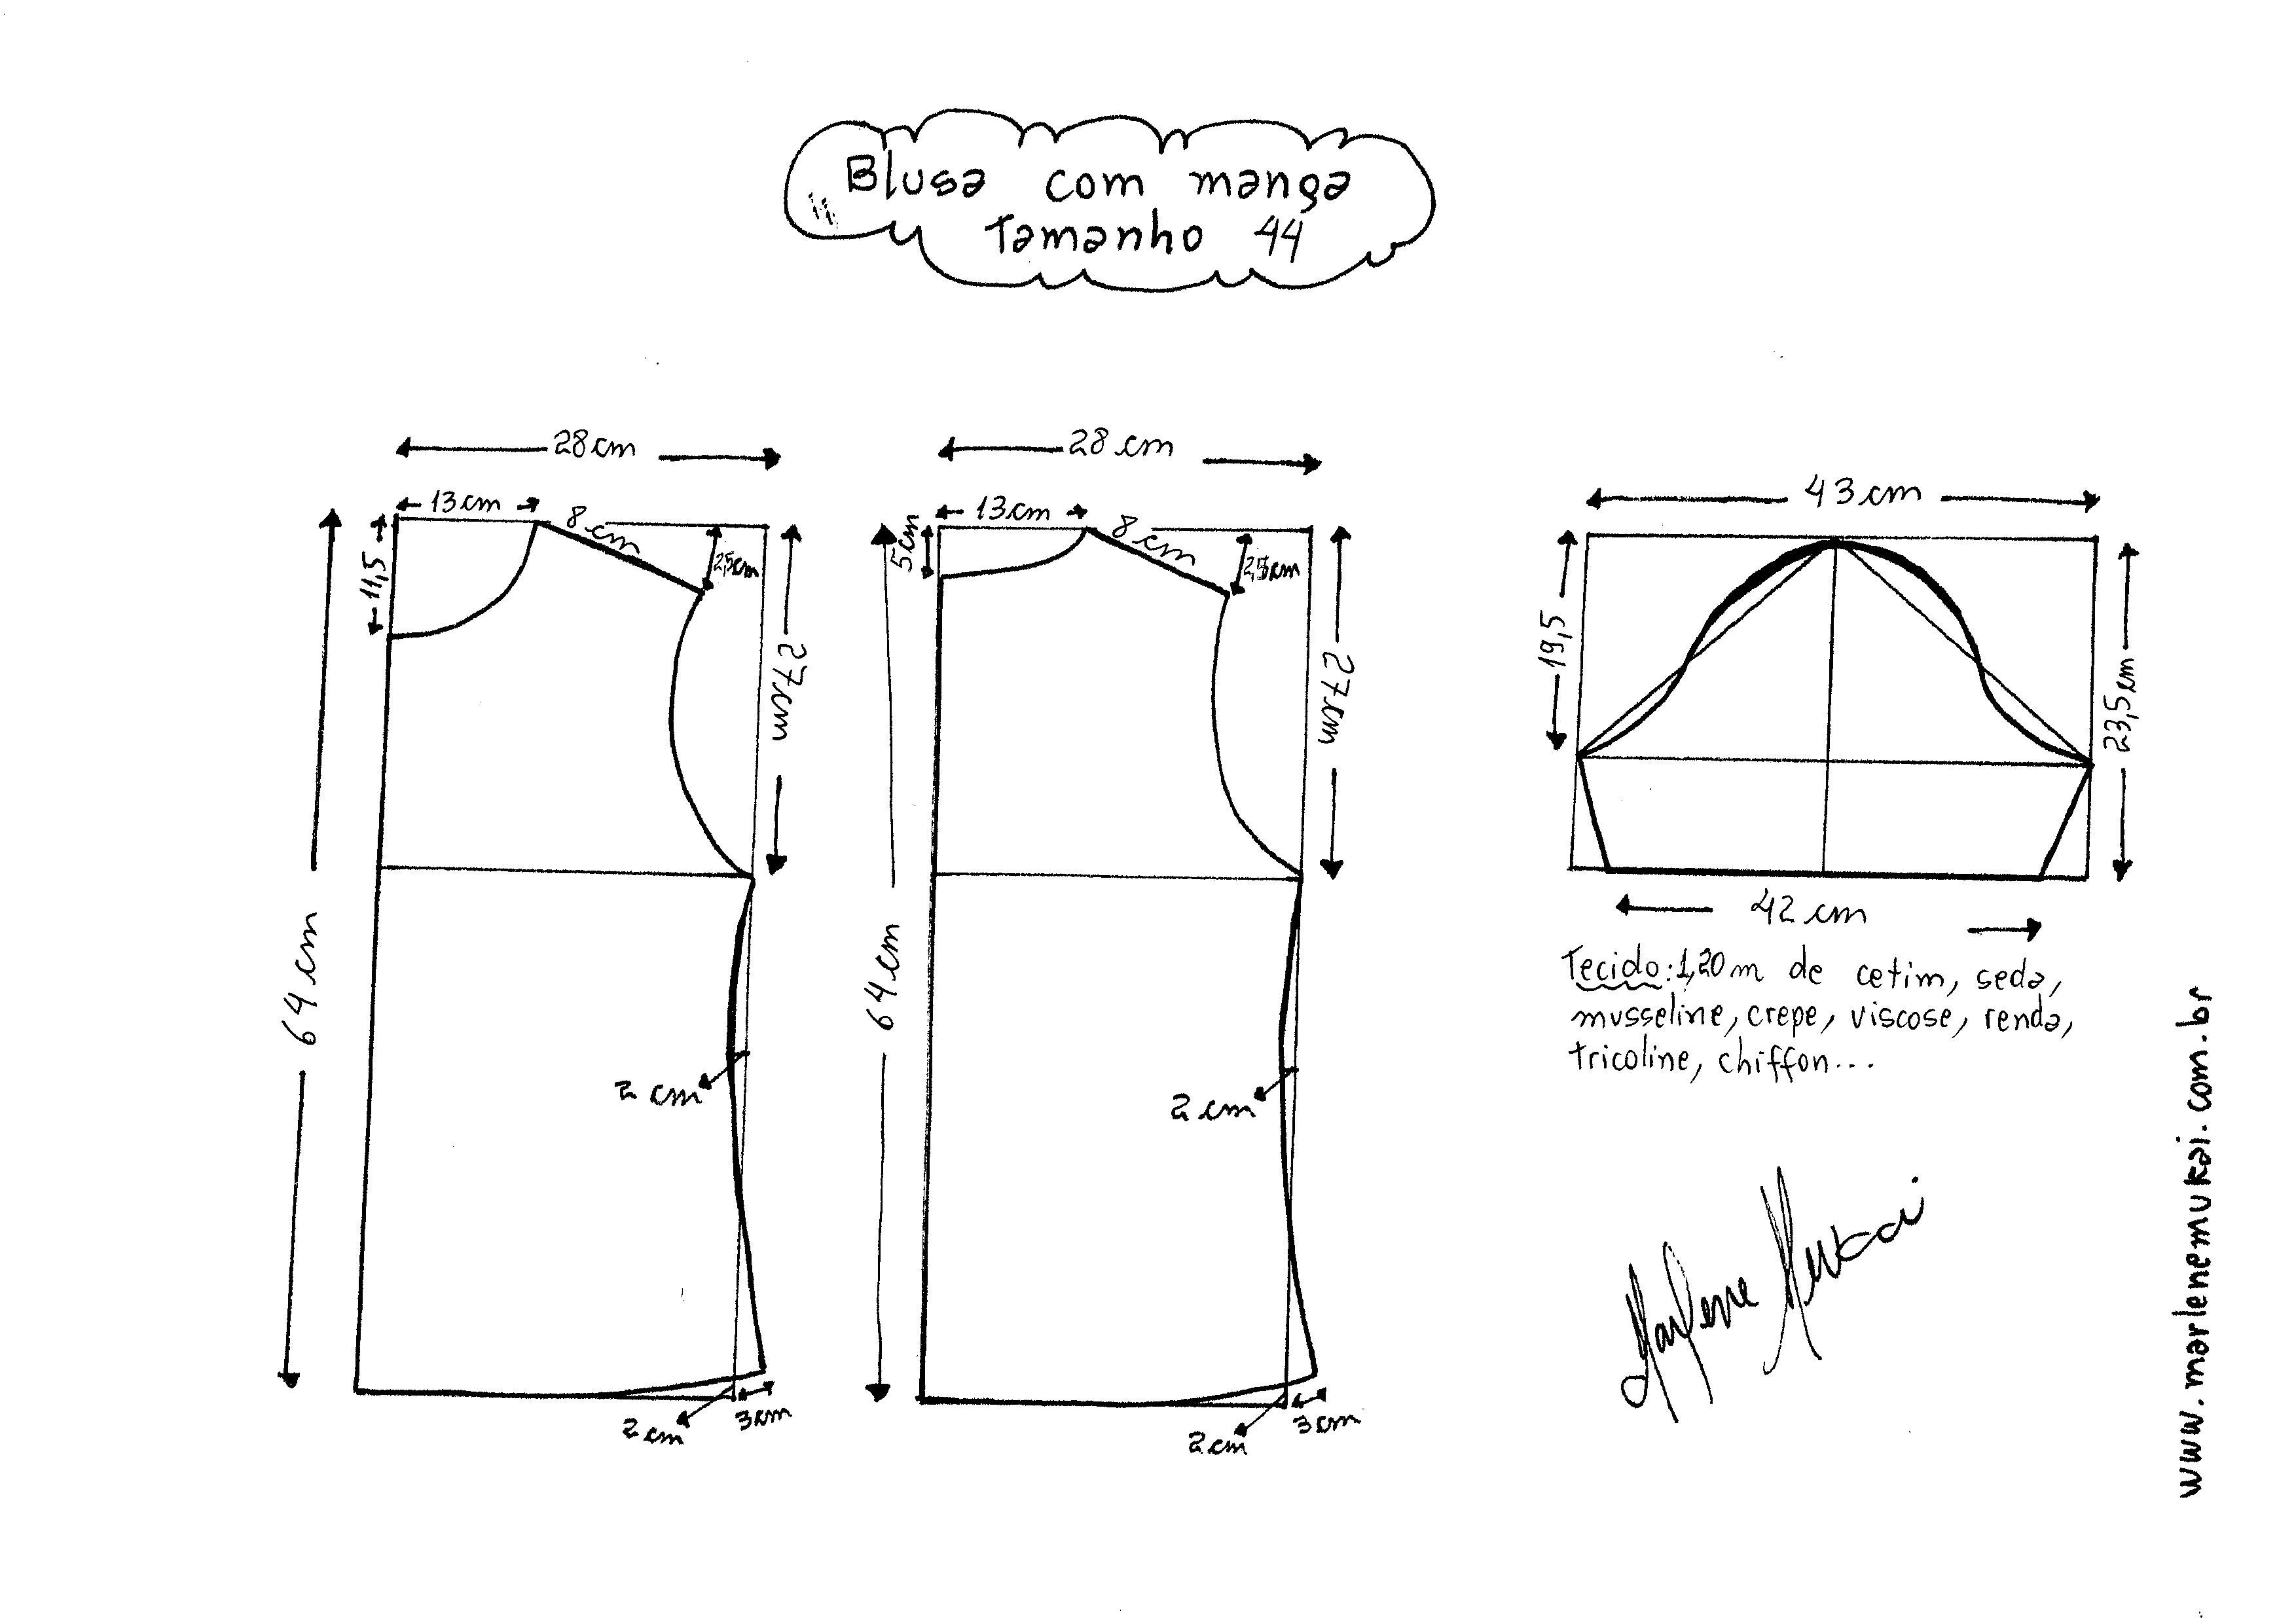 Blusa com manga
Tamanho 44
28 cm
13 cm
8 cm
11,5
2,5 cm
27 cm
64 cm
2 cm
2 cm
3 cm
28 cm
13 cm
8 cm
5 cm
2,5 cm
27 cm
64 cm
2 cm
2 cm
3 cm
43 cm
19,5
23,5 cm
42 cm
Tecido: 1,20 m de cetim, seda,
musseline, crepe, viscose, renda,
tricoline, chiffon...
Marlene Mukai
www.marlenemukai.com.br